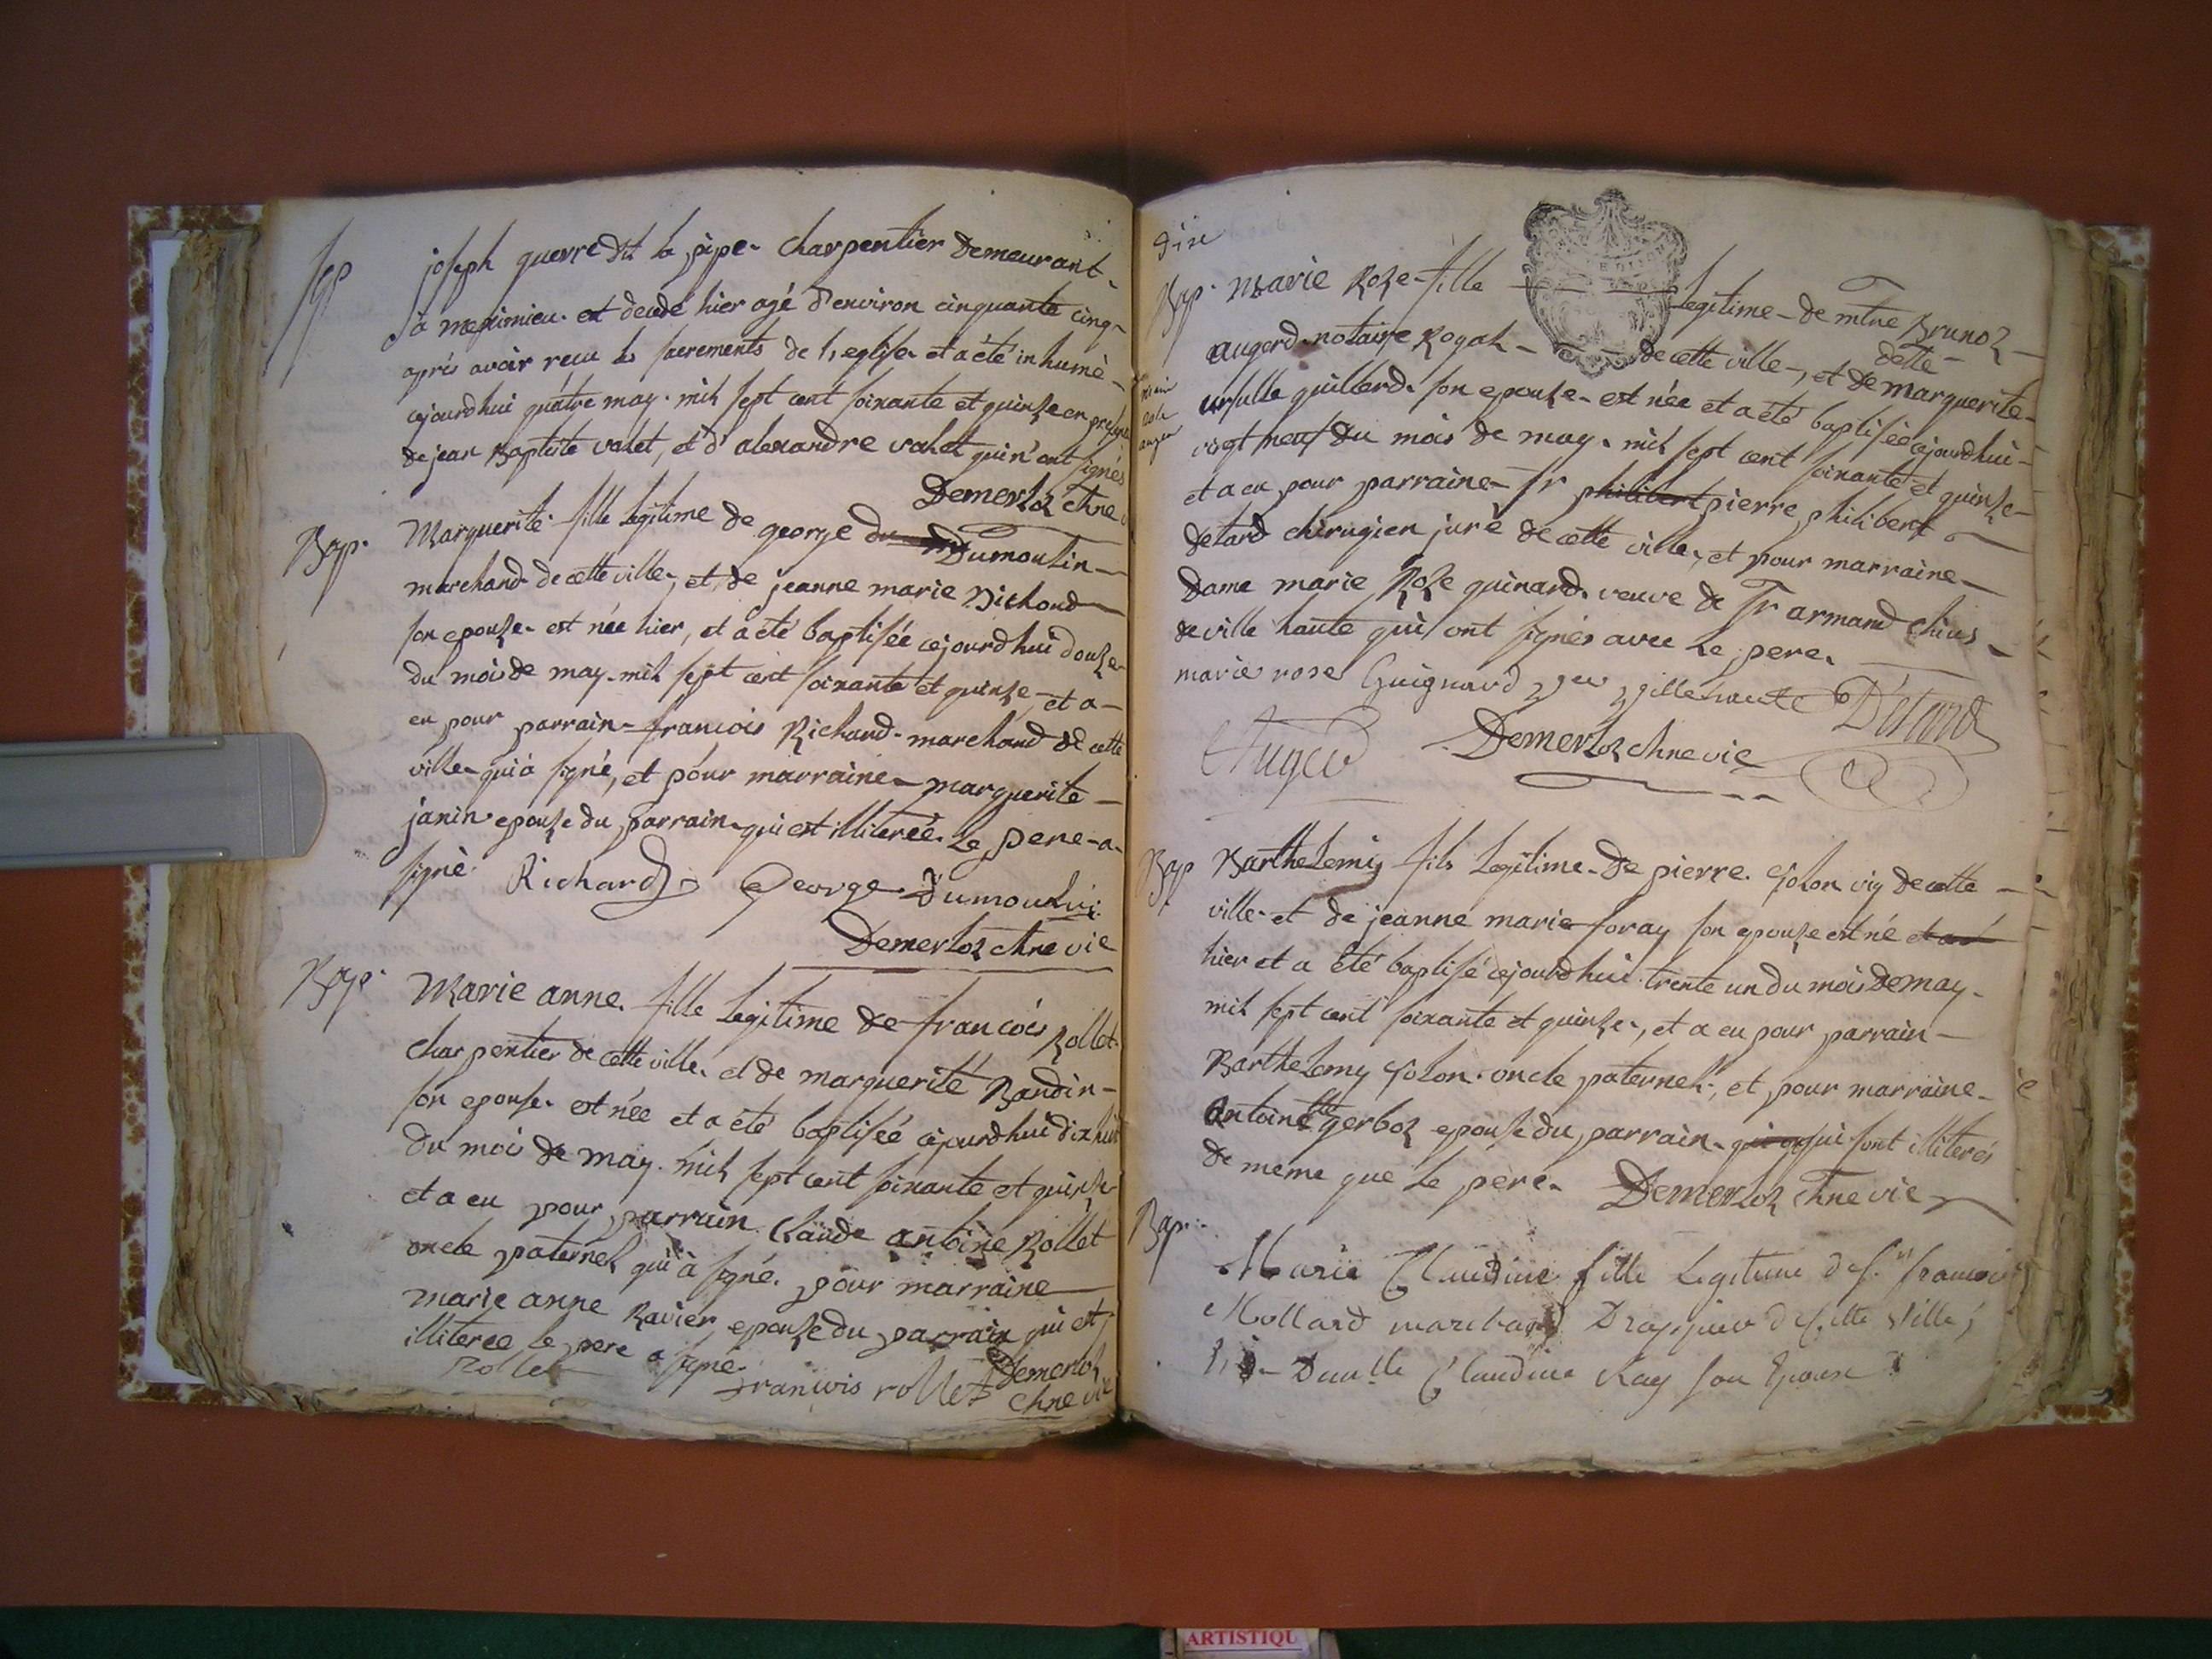 Sep
joseph guerre dit la pipe charpentier demeurant
à meximieu est decedé hier agé d'environ cinquante cinq
aprés avoir recu les sacrements de l'eglise et a été inhumè
cejourdhui quatre may mil sept cent soixante et quinze en presence
de jean Baptiste valet, et d'alexandre valet qui n'ont signés
Demerloz chne
Bap.
Marguerite fille legitime de george du Dumoulin
marchand de cette ville, et de jeanne marie Richond
son epouse est née hier, et a été baptisée cejourdhui douze
du mois de may mil sept cent soixante et quinze, et a
eu pour parrain francois Richard marchand de cette
ville qui à signé, et pour marraine marguerite
janin epouse du parrain qui est illiterée le pere a
signè Richard George Dumoulin
Demerloz chne vic
Bap.
Marie anne fille legitime de francois Rollet
charpentier de cette ville et de marguerite Bandin
son epouse est née et a été baptisée cejourdhui dix huit
du mois de may mil sept cent soixante et quinze
et a eu pour parrain Claude antoine Rollet
oncle paternel qui à signé pour marraine
marie anne Ravier epouse du parrain qui est
illiteree le pere a signé Demerloz
Rollet francois rollet chne vic
dix
Bap. Marie Roze fille legitime de mtre Bruno
augerd notaire Royal de cette ville, et de dette marguerite
ursulle guillerd son epouse est née et a été baptisée cejourdhui
vingt neuf du mois de may mil sept cent soixante et quinze
et a eu pour parraine sr philibert pierre philibert
detard chirugien juré de cette ville, et pour marraine
Dame marie Roze guinard veuve de sr armand
de ville haute qui ont signés avec le pere.
marie rose Guignard villehaute Détard
Auged Demerloz chne vic
Bap Barthelemy fils legitime de pierre Colon vig de cette
ville et de jeanne marie foray son epouse est né et a été
hier et a été baptisé cejourdhui trente un du mois de may
mil sept cent soixante et quinze, et a eu pour parrain
Barthelemy Colon oncle paternel, et pour marraine
Antoinette gerboz epouse du parrain qui sont illiterés
de meme que le pere. Demerloz chne vic
Bap.
Marie Claudine fille Legitime de sr francois
Mollard marchand Drappier de cette Ville,
Claudine Ray son Epouse